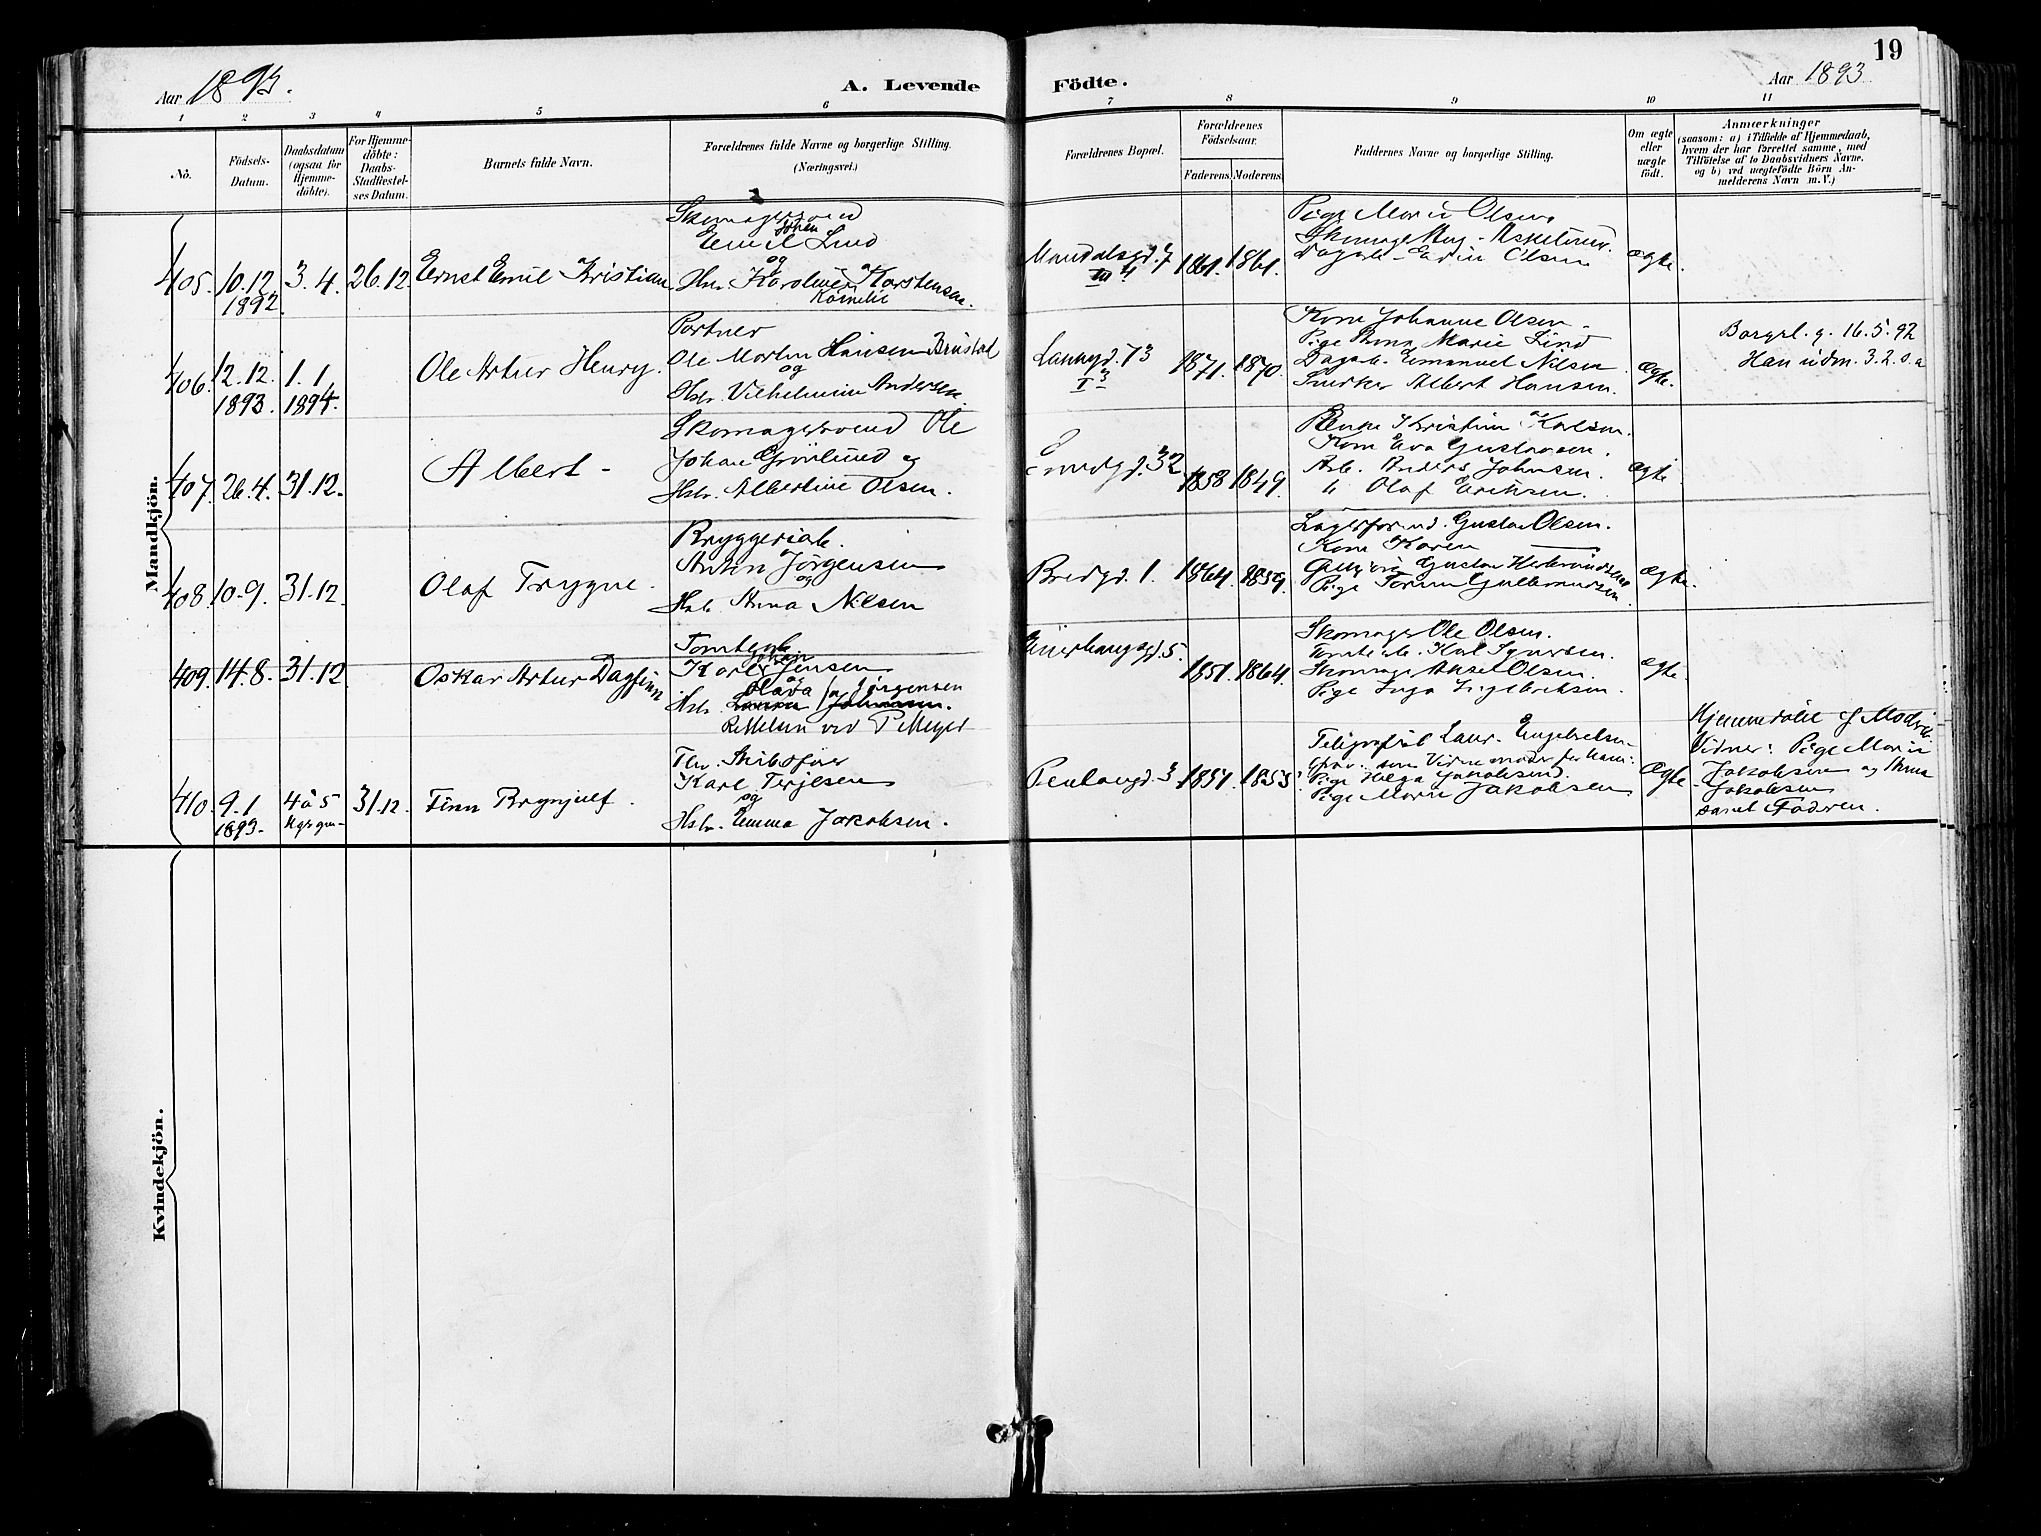 19
Aar 1893.
A. Levende
Födte.
Aar 1893
1 2 3 4 5 6 7 8 9 10 11
No.
Födsels-
Datum.
Daabsdatum
(ogsaa for
Hjemme-
döbte).
For Hjemme-
döbte:
Daabs-
Stadfæstel-
ses Datum.
Barnets fulde Navn.
Forældrenes fulde Navne og borgerlige Stilling.
(Næringsvei.)
Forældrenes Bopæl.
Forældrenes
Födselsaar.
Faderens. Moderens.
Faddernes Navne og borgerlige Stilling.
Om ægte
eller
uægte
født.
Anmærkninger
(saasom: a) i Tilfælde af Hjemmedaab,
hvem der har forrettet samme, med
Tilföielse af to Daabsvidners Navne,
og b) ved uægtefödte Börn An-
melderens Navn m.V.)
Mandkjön.
405.
10.12
1892.
3.4.
26.12
Ernst Emil Kristian
Skomagersvend
Johan
Emil Lind
og
Hstr. Karoline Karstensen.
Kornelie
Mandalsgd. 7
III
1861.
1861.
Pige Marie Olsen
Edvin Olsen
ægte.
406.
12.12.
1893.
1.1
1894.
Ole Artur Henry.
Portner
Ole Morten Hansen Brustad
og
Hstr. Vilhelmine Andersen.
Lanngd. 73
I
1871.
1870.
Kone Johanne Olsen
Pige Anna Marie Lind
Dagarb. Emanuel Nilsen
Snedker Albert Hansen.
Ægte.
Borgerl. g. 16.5.92
Han udm. 3.2. s. a
407.
26.4.
31.12.
Albert -
Skomagersvend Ole
Johan Grönlund og
Hstr. Albertine Olsen.
32
1858
1849.
Enke Kristine Karlsen.
Kone Eva Gustavsen.
Arb. Anders Johnsen.
" Olaf Eriksen.
ægte
408.
10.9.
31.12.
Olaf Trygve.
Bryggeriarb.
Anton Jörgensen
og
Hstr. Anna Nilsen
Bredgd. 1.
1864.
1859.
Lagerform. Gustav Olsen.
Kone Karen ———
Gustav Herbrandsen
Pige Torine Gulbrandsen.
ægte.
409.
14.8.
31.12
Oskar Artur Dagfinn
Tomtearb.
Johan
Karl Jensen
og
Olava Jørgensen
Hstr.
Rettelsen ved P Meyer
5.
1851.
1864.
Skomager Ole Olsen.
Tomtearb. Karl Syversen.
Skomager Aksel Olsen.
Pige Inga Ingebriksen.
ægte.
410.
9.1
1893.
4 á 5
31.12.
Finn Brynjulf.
Fhv. Skibsfører
Karl Terjesen
og
Hstr. Emma Jakobsen.
3
1851.
1853
Telegrafist Laur. Engebretsen
Pige Helga Jakobsen.
Pige Marie Jakobsen
Ægte
Hjemmedøbt af
Vidner: Pige Marie
Jakobsen og Anna
Jakobsen
samt Faderen.
Kvindekjön.